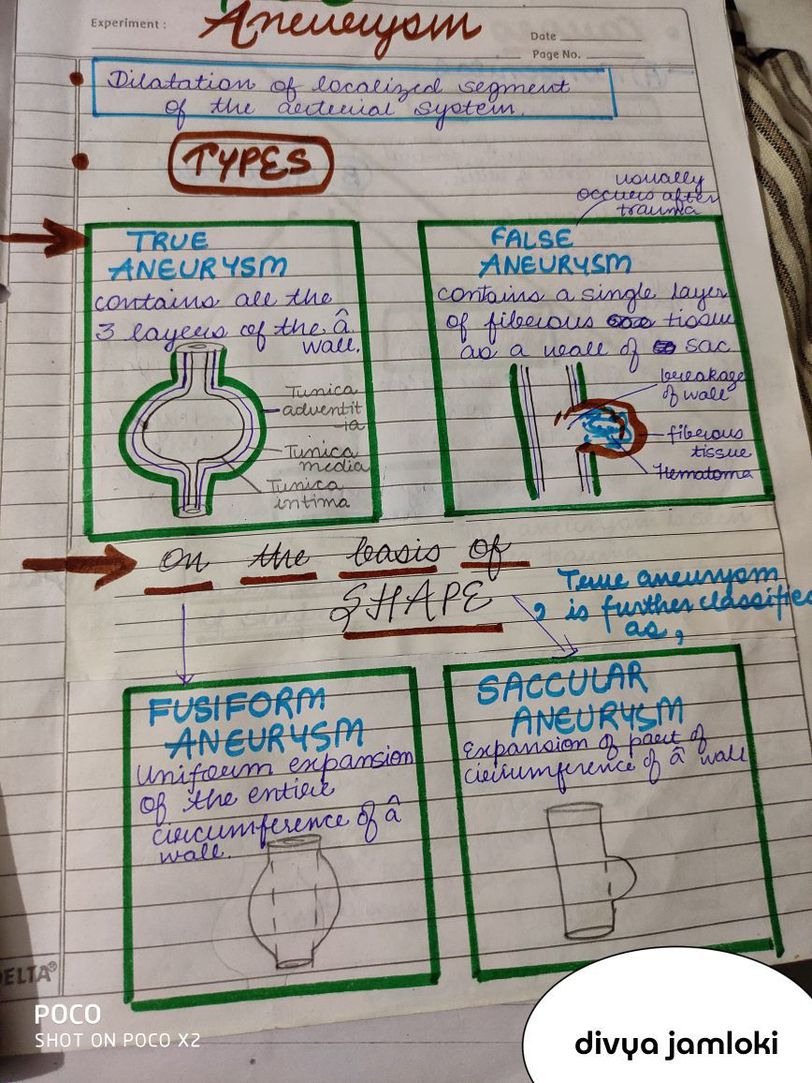 Aneurysm
Experiment :
Date
Page No.
Dilatation of localized segment
of the arterial system.
TYPES
usually
occurs after
trauma
TRUE
ANEURYSM
contains all the
3 layers of the â
wall.
Tunica
adventit
-ia
Tunica
media
Tunica
intima
FALSE
ANEURYSM
contains a single layer
of fiberous tissue
as a wall of sac
breakage
of wall
fiberous
tissue
Hematoma
on the basis of
SHAPE
True aneurysm
, is further classified
as,
FUSIFORM
ANEURYSM
Uniform expansion
of the entire
circumference of â
wall.
SACCULAR
ANEURYSM
Expansion of part of
circumference of â wall
DELTA®
POCO
SHOT ON POCO X2
divya jamloki